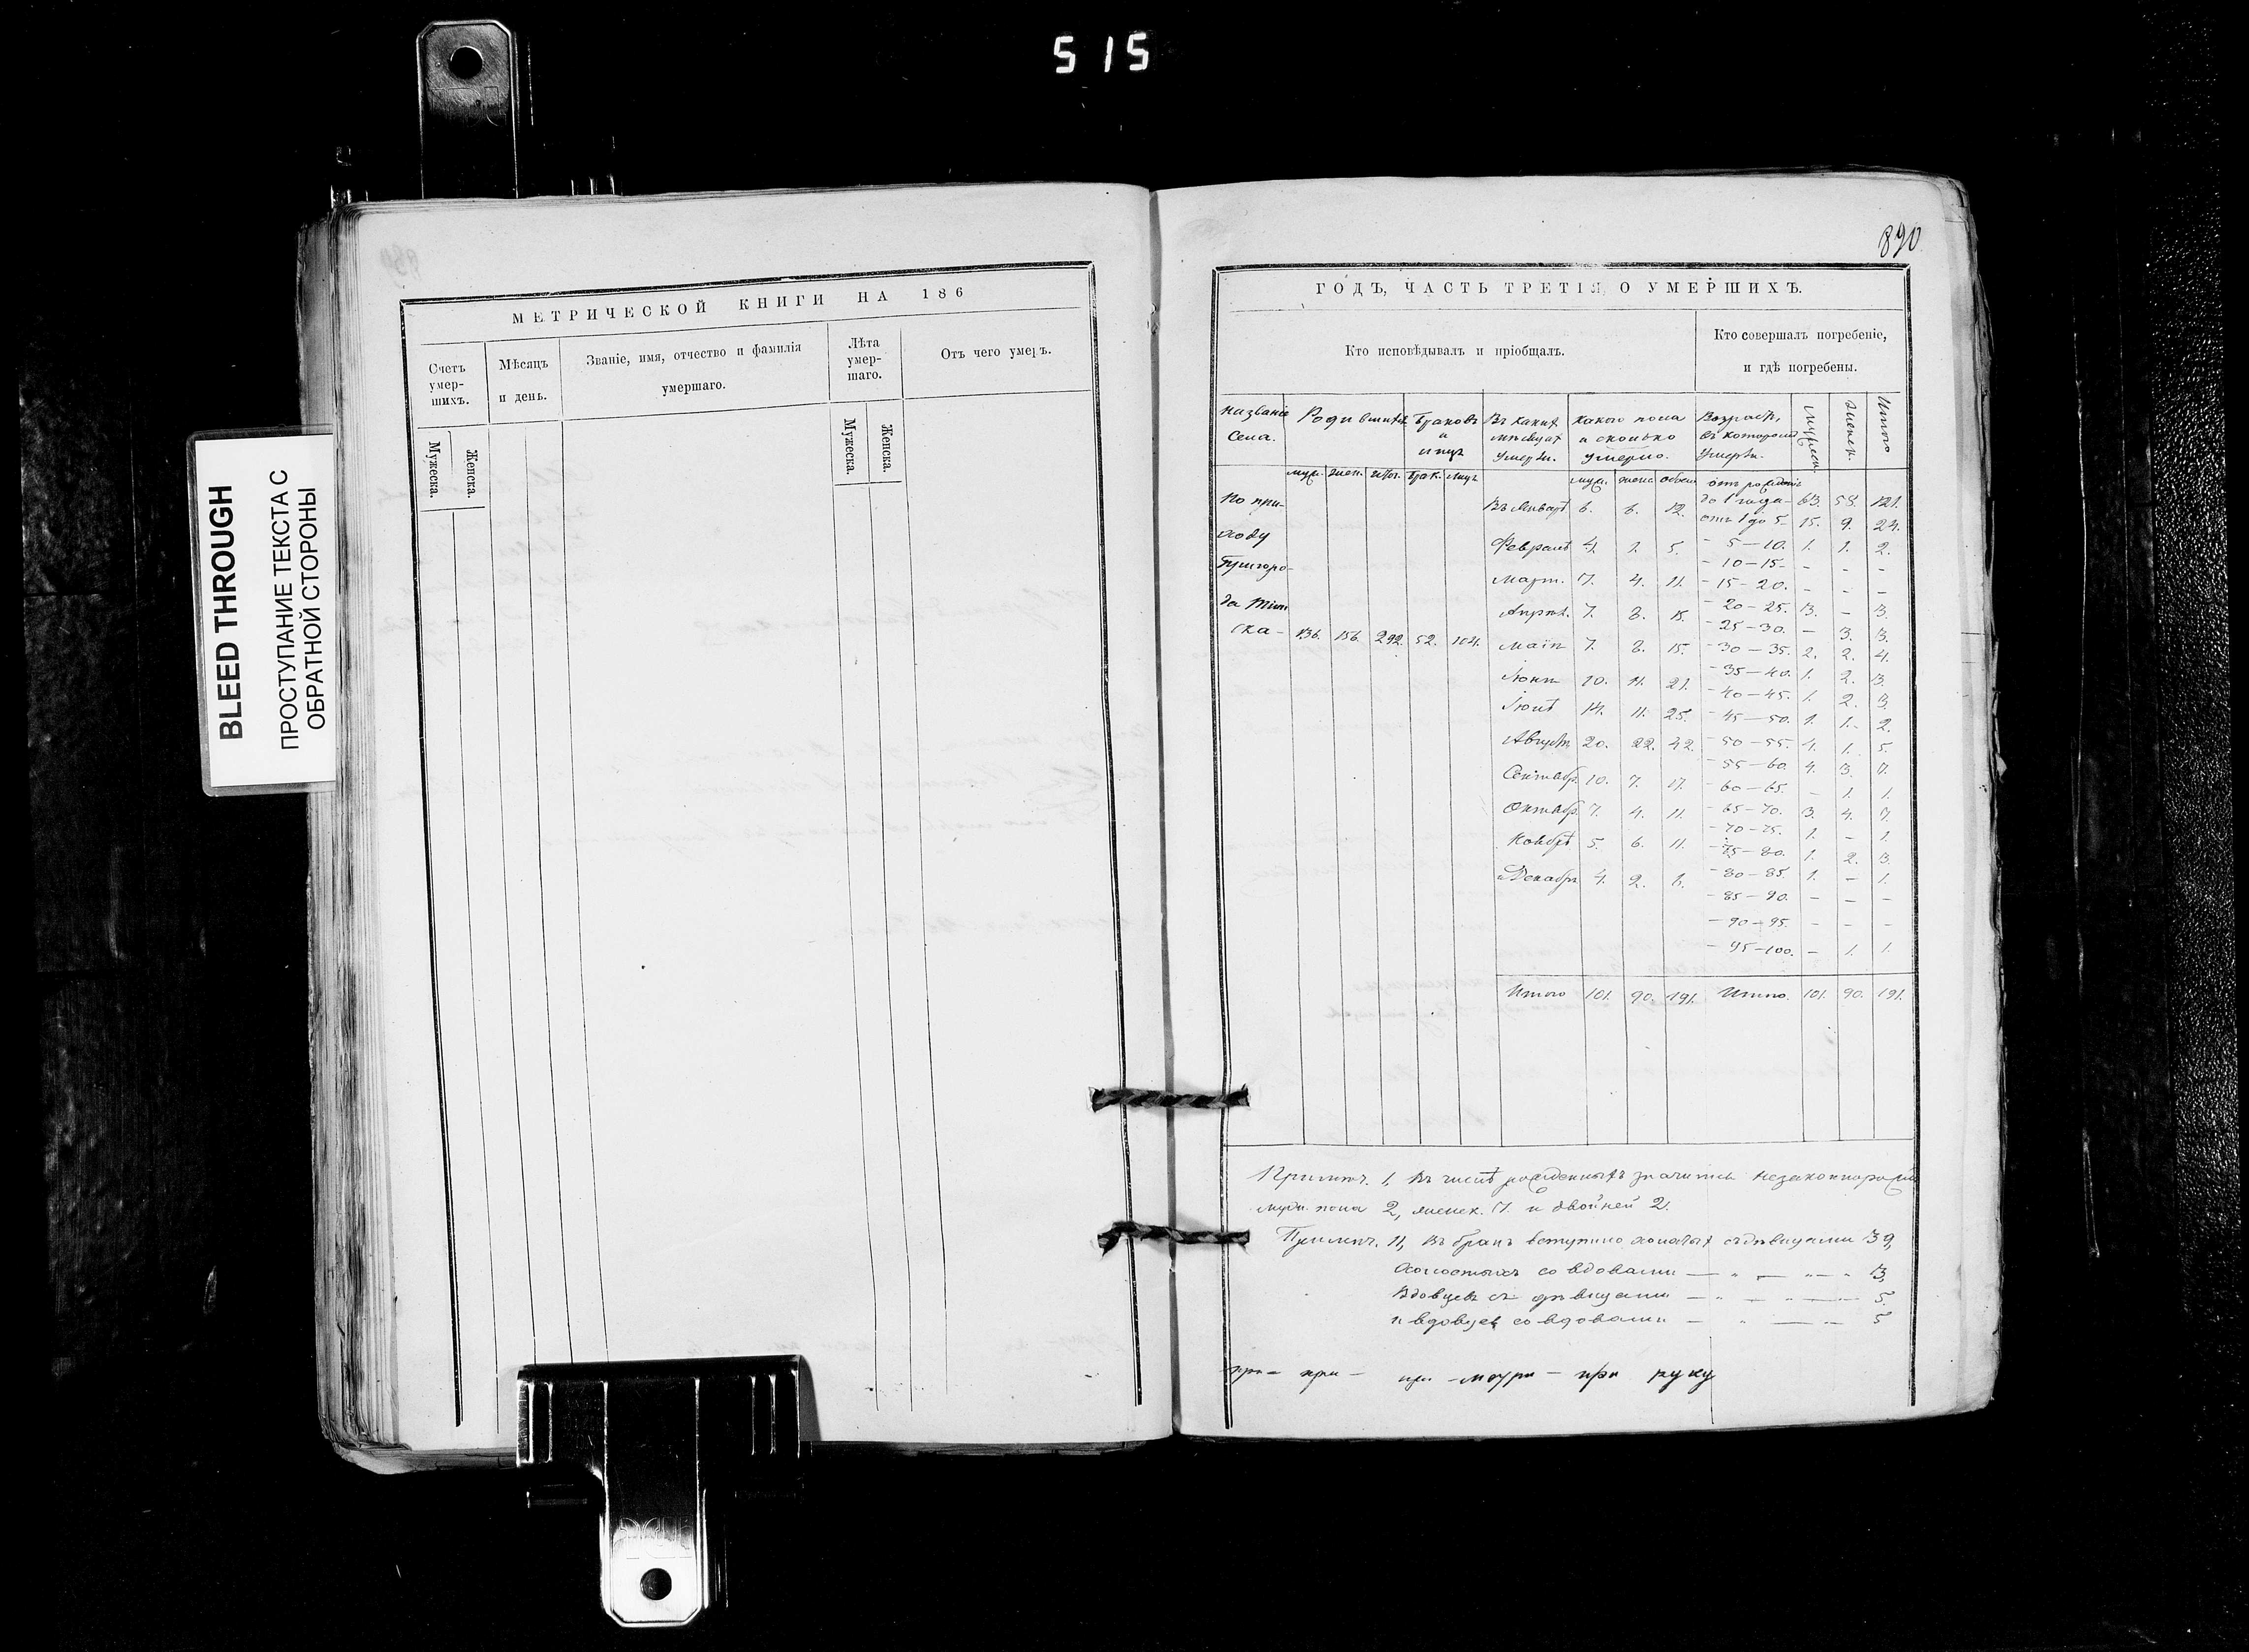 515
BLEED THROUGH
ПРОСТУПАНИЕ ТЕКСТА С
ОБРАТНОЙ СТОРОНЫ
МЕТРИЧЕСКОЙ КНИГИ НА 186
Счетъ умер-шихъ.
Мѣсяцъ и день.
Званіе, имя, отчество и фамилія умершаго.
Лѣта умер-шаго.
Отъ чего умеръ.
Мужеска. Женска.
Мужеска. Женска.
890
ГОДЪ, ЧАСТЬ ТРЕТІЯ, О УМЕРШИХЪ.
Кто исповѣдывалъ и пріобщалъ.
Кто совершалъ погребеніе,
и гдѣ погребены.
Названіе Села.
Родившихся
Браковъ и лицъ
Въ какихъ мѣсяцахъ умерли.
Какого пола и сколько умерло.
Возрастъ, въ которомъ умерли.
Мужеск. Женск. Итого
муж. жен. Итог. брак. лицъ
муж. женс. обоего
По при-
ходу
Пригоро-
да Тіин
ска - 136. 156. 292. 52. 104.
Въ Январѣ 6. 6. 12.
Февралѣ 4. 1. 5.
Март. 7. 4. 11.
Апрѣл. 7. 8. 15.
Маіѣ 7. 8. 15.
Іюнѣ 10. 11. 21.
Іюлѣ 14. 11. 25.
Августѣ 20. 22. 42.
Сентябр. 10. 7. 17.
Октябр. 7. 4. 11.
Ноябрѣ 5. 6. 11.
и Декабрѣ 4. 2. 6.
Итого 101. 90. 191.
отъ рожденія
до 1 года - 63. 58. 121.
отъ 1 до 5. 15. 9. 24.
- 5-10. 1. 1. 2.
- 10-15. - - -
- 15-20. - - -
- 20-25. 3. - 3.
- 25-30. - 3. 3.
- 30-35. 2. 2. 4.
- 35-40. 1. 2. 3.
- 40-45. 1. 2. 3.
- 45-50. 1. 1. 2.
- 50-55. 4. 1. 5.
- 55-60. 4. 3. 7.
- 60-65. - 1. 1.
- 65-70. 3. 4. 7.
- 70-75. 1. - 1.
- 75-80. 1. 2. 3.
- 80-85. 1. - 1.
- 85-90. - - -
- 90-95. - - -
- 95-100. - 1. 1.
Итого. 101. 90. 191.
Примѣч. 1, Въ числѣ рожденныхъ значится незаконнорожд.
муж. пола 2, женск. 7. и двойней 2.
Примѣч. 11, Въ бракъ вступило холостыхъ съ дѣвицами 39,
Холостыхъ со вдовами 3,
Вдовцевъ съ дѣвицами 5.
и вдовцевъ со вдовами 5
при - при - при - при руку